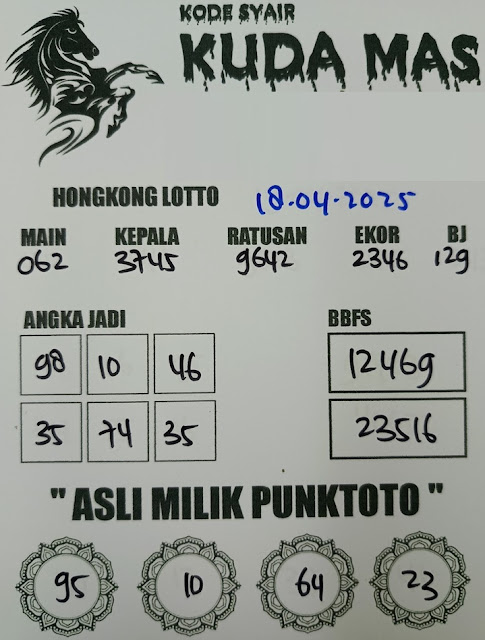 KODE SYAIR
KUDA MAS
HONGKONG LOTTO 18-04-2025
MAIN KEPALA RATUSAN EKOR BJ
062 3745 9642 2346 129
ANGKA JADI BBFS
98 10 46 12469
35 74 35 23516
" ASLI MILIK PUNKTOTO "
95 10 64 23